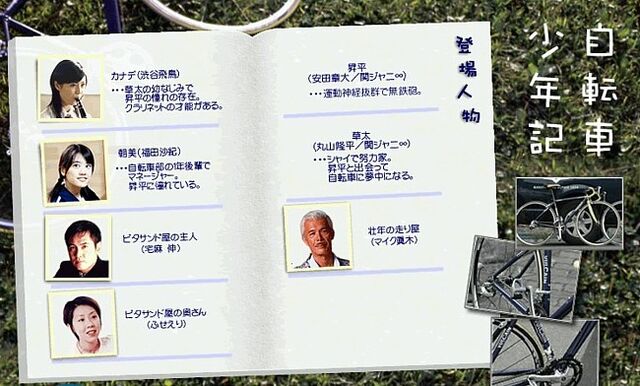 自転車
少年記
登場人物
カナデ(渋谷飛鳥)
…草太の幼なじみで
昇平の憧れの存在。
クラリネットの才能がある。
朝美(福田沙紀)
…自転車部の1年後輩で
マネージャー。
昇平に憧れている。
ピタサンド屋の主人
(宅麻 伸)
ピタサンド屋の奥さん
(ふせえり)
昇平
(安田章大/関ジャニ∞)
…運動神経抜群で無鉄砲。
草太
(丸山隆平/関ジャニ∞)
…シャイで努力家。
昇平と出会って
自転車に夢中になる。
壮年の走り屋
(マイク眞木)